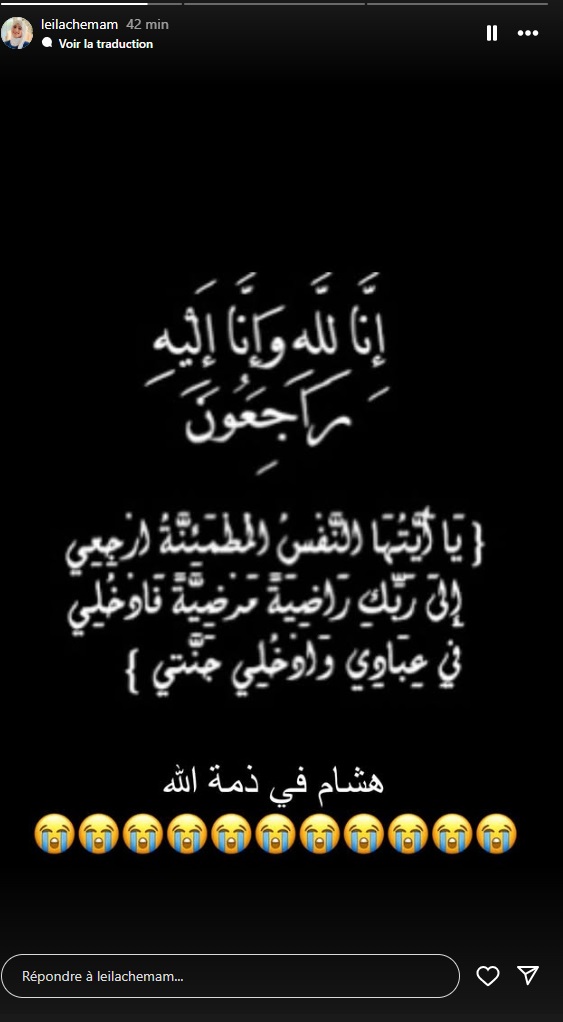 leilachemam 42 min
Voir la traduction
إِنَّا لِلَّهِ وَإِنَّا إِلَيْهِ
رَاجِعُونَ
{ يَا أَيَّتُهَا النَّفْسُ الْمُطْمَئِنَّةُ ارْجِعِي
إِلَى رَبِّكِ رَاضِيَةً مَرْضِيَّةً فَادْخُلِي
فِي عِبَادِي وَادْخُلِي جَنَّتِي }
هشام في ذمة الله
😭😭😭😭😭😭😭😭😭😭😭
Répondre à leilachemam...